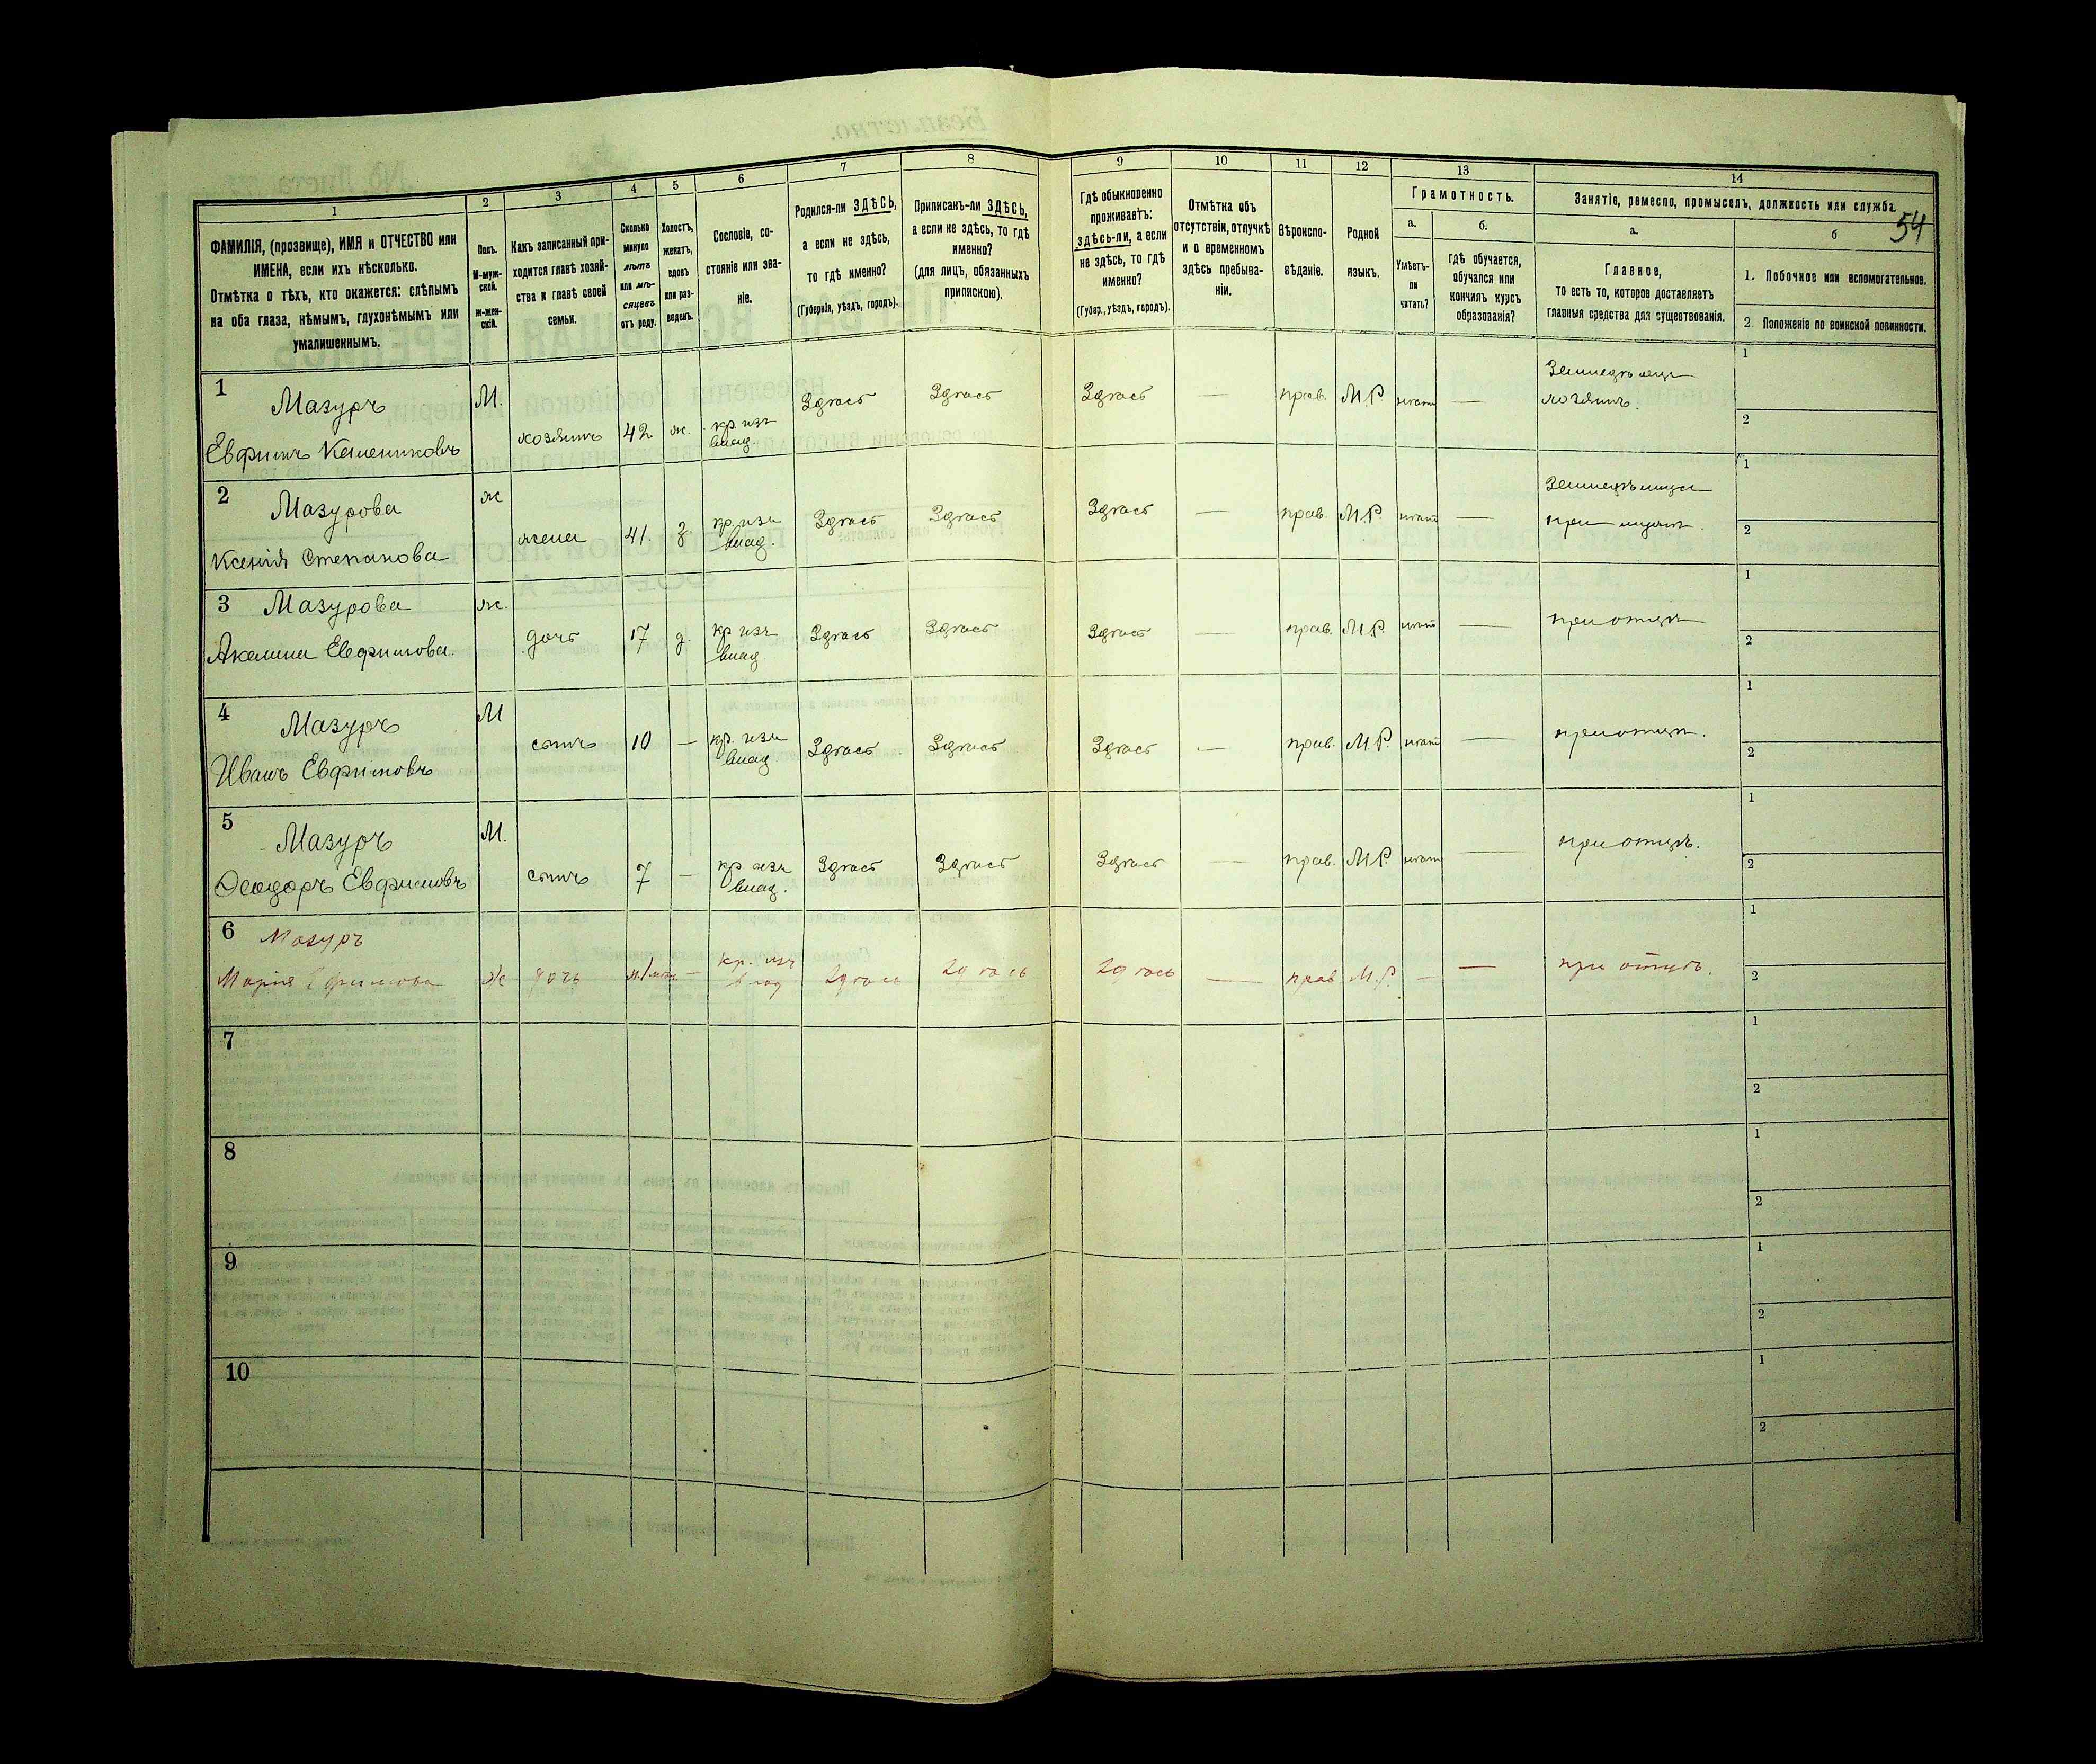 54
1
2
3
4
5
6
7
8
9
10
11
12
13
14
ФАМИЛІЯ, (прозвище), ИМЯ и ОТЧЕСТВО или
ИМЕНА, если ихъ нѣсколько.
Отмѣтка о тѣхъ, кто окажется: слѣпымъ
на оба глаза, нѣмымъ, глухонѣмымъ или
умалишеннымъ.
Полъ.
М-муж-
ской.
Ж-жен-
скій.
Какъ записанный при-
ходится главѣ хозяй-
ства и главѣ своей
семьи.
Сколько
минуло
лѣтъ
или мѣ-
сяцевъ
отъ роду.
Холостъ,
женатъ,
вдовъ
или раз-
веденъ.
Сословіе, со-
стояніе или зва-
ніе.
Родился-ли ЗДѢСЬ,
а если не здѣсь,
то гдѣ именно?
(Губернія, уѣздъ, городъ).
Приписанъ-ли ЗДѢСЬ,
а если не здѣсь, то гдѣ
именно?
(для лицъ, обязанныхъ
припискою).
Гдѣ обыкновенно
проживаетъ:
здѣсь-ли, а если
не здѣсь, то гдѣ
именно?
(Губер., уѣздъ, городъ).
Отмѣтка объ
отсутствіи, отлучкѣ
и о временномъ
здѣсь пребыва-
ніи.
Вѣроиспо-
вѣданіе.
Родной
языкъ.
Грамотность.
а.
Умѣетъ-
ли
читать?
б.
гдѣ обучается,
обучался или
кончилъ курсъ
образованія?
Занятіе, ремесло, промыселъ, должность или служба
а.
Главное,
то есть то, которое доставляетъ
главныя средства для существованія.
б
1. Побочное или вспомогательное.
2 Положеніе по воинской повинности.
1
Мазуръ
Евфимъ
М.
хозяинъ
42
ж.
кр изъ
влад.
Здѣсь
Здѣсь
Здѣсь
—
прав.
М.Р.
—
хозяинъ.
1
2
2
Мазурова
Ксенія Степанова
ж
жена
41.
з
кр. изъ
влад.
Здѣсь
Здѣсь
Здѣсь
—
прав.
М.Р.
—
при мужѣ.
1
2
3
Мазурова
Акелина Евфимова.
ж.
дочь
17
д.
кр изъ
влад
Здѣсь
Здѣсь
Здѣсь
—
прав.
М.Р.
—
при отцѣ
1
2
4
Мазуръ
Иванъ Евфимовъ
М
сынъ
10
—
кр. изъ
влад
Здѣсь
Здѣсь
Здѣсь
—
прав.
М.Р.
—
при отцѣ.
1
2
5
Мазуръ
Ѳеодоръ Евфимовъ
М.
сынъ
7
—
кр изъ
влад.
Здѣсь
Здѣсь
Здѣсь
—
прав.
М.Р.
—
при отцѣ.
1
2
6
Мазуръ
Марія Ефимова
Ж
дочь
—
кр. изъ
влад
Здѣсь
Здѣсь
Здѣсь
—
прав
М.Р.
—
—
при отцѣ.
1
2
7
1
2
8
1
2
9
1
2
10
1
2